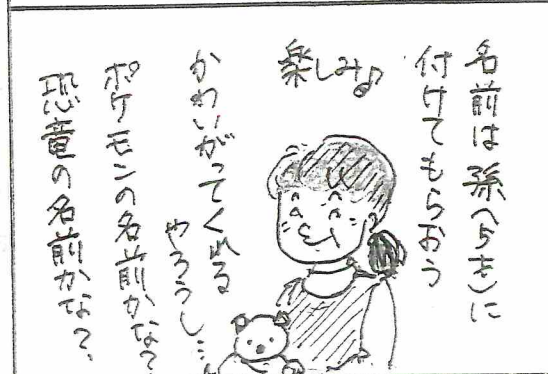 名前は孫(5才)に
付けてもらおう
楽しみ♪
かわいがってくれる
やろうし…
ポケモンの名前かな?
恐竜の名前かな?